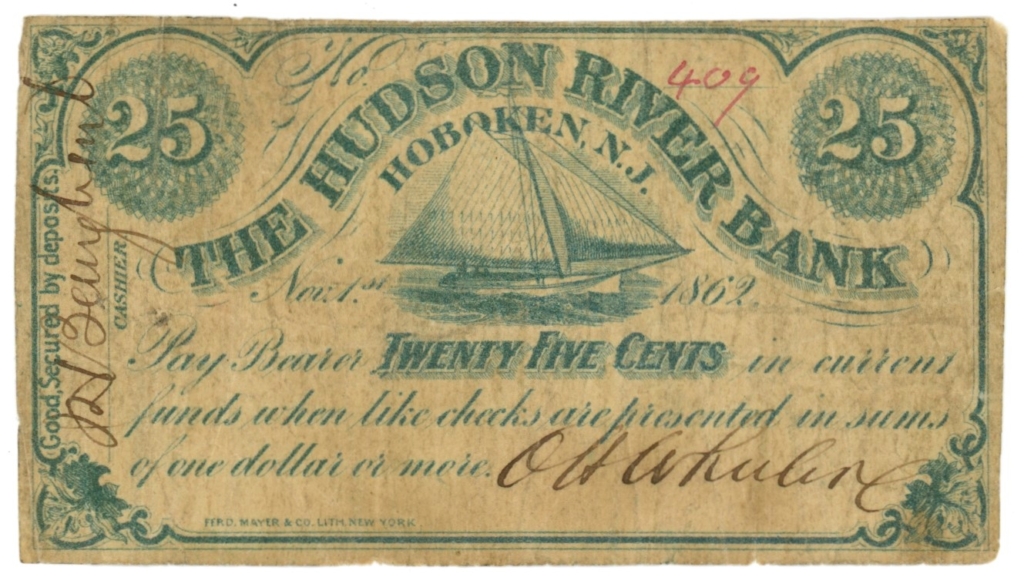 No. 409
25
25
THE HUDSON RIVER BANK
HOBOKEN, N.J.
Nov. 1.st 1862.
Pay Bearer TWENTY FIVE CENTS in current
funds when like checks are presented in sums
of one dollar or more.
O H Wheeler
FERD. MAYER & CO. LITH. NEW YORK
Good, Secured by deposits.
CASHIER